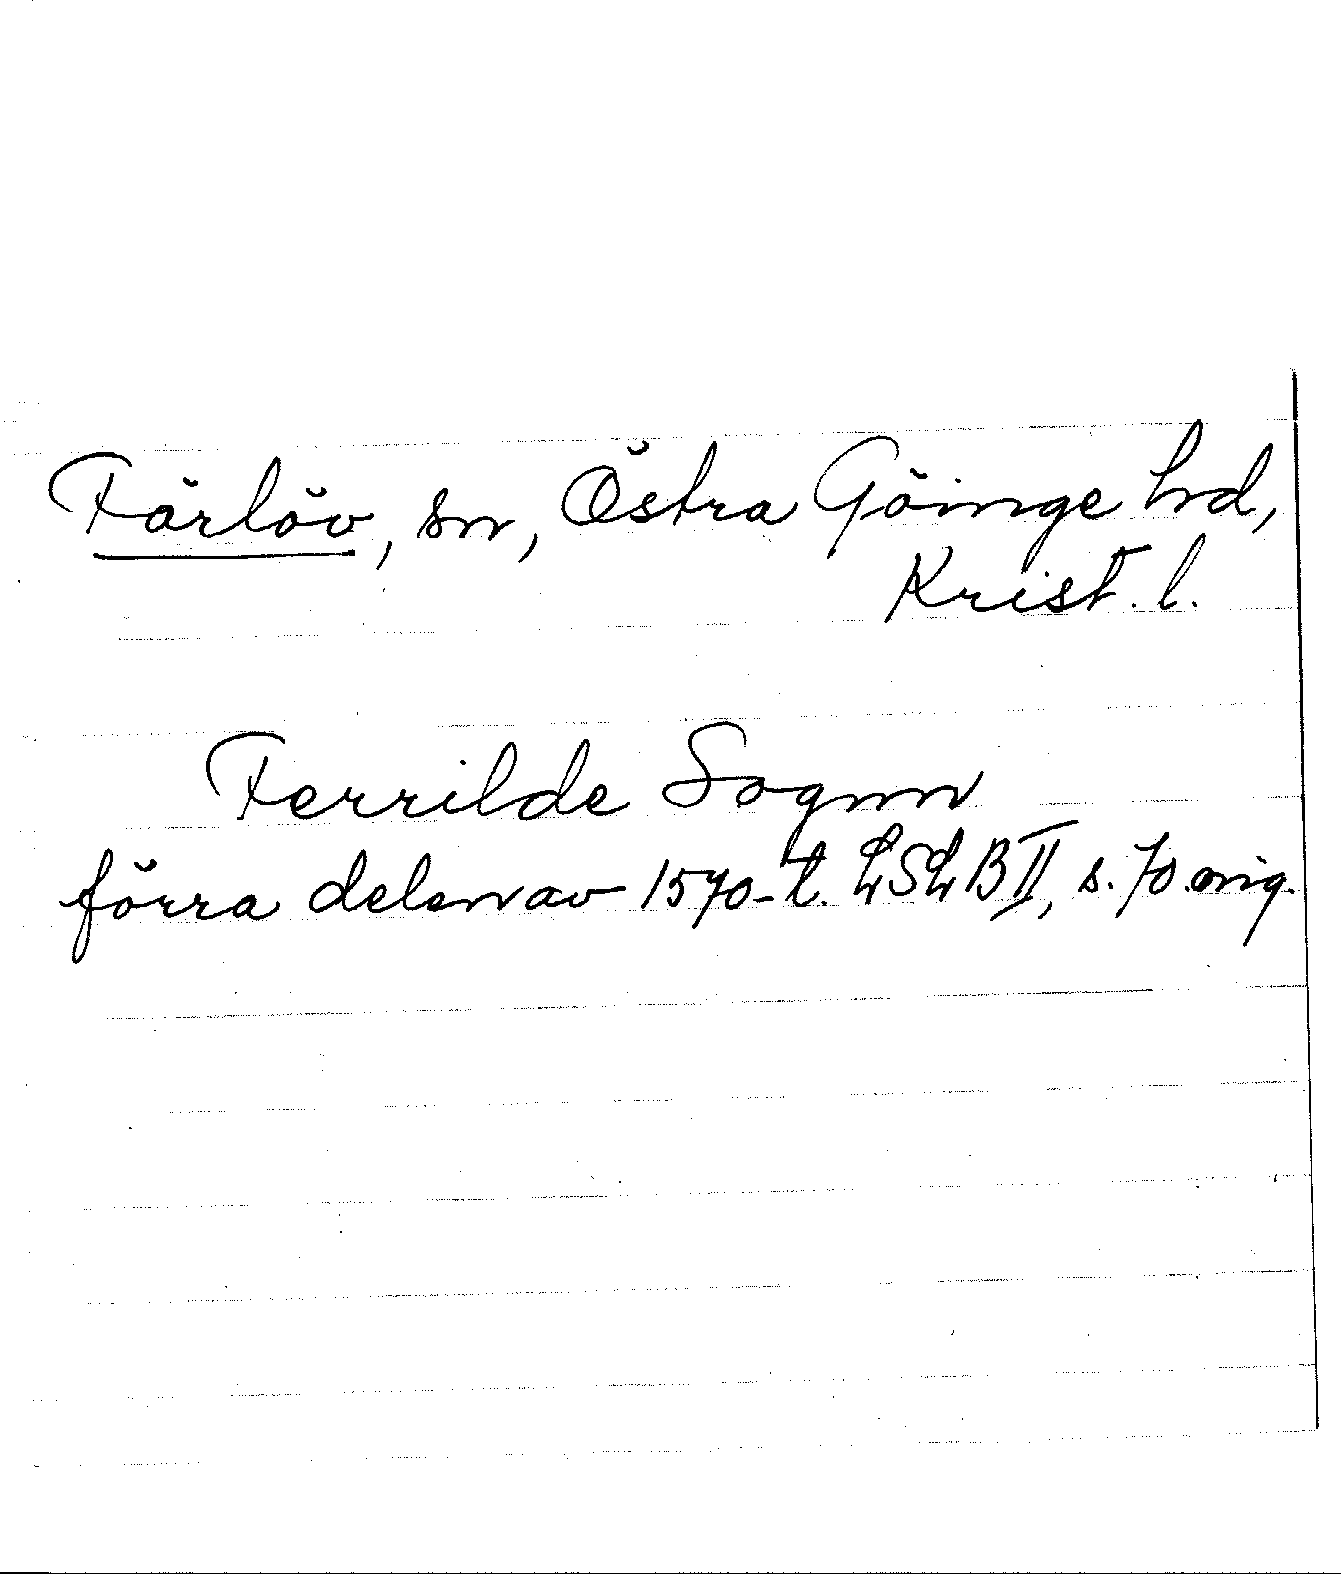 Färlöv, sn, Östra Göinge hd,
Krist. l.
Ferrilde Sognn
förra delen av 1570-t. LSLB II, s. 70 orig.